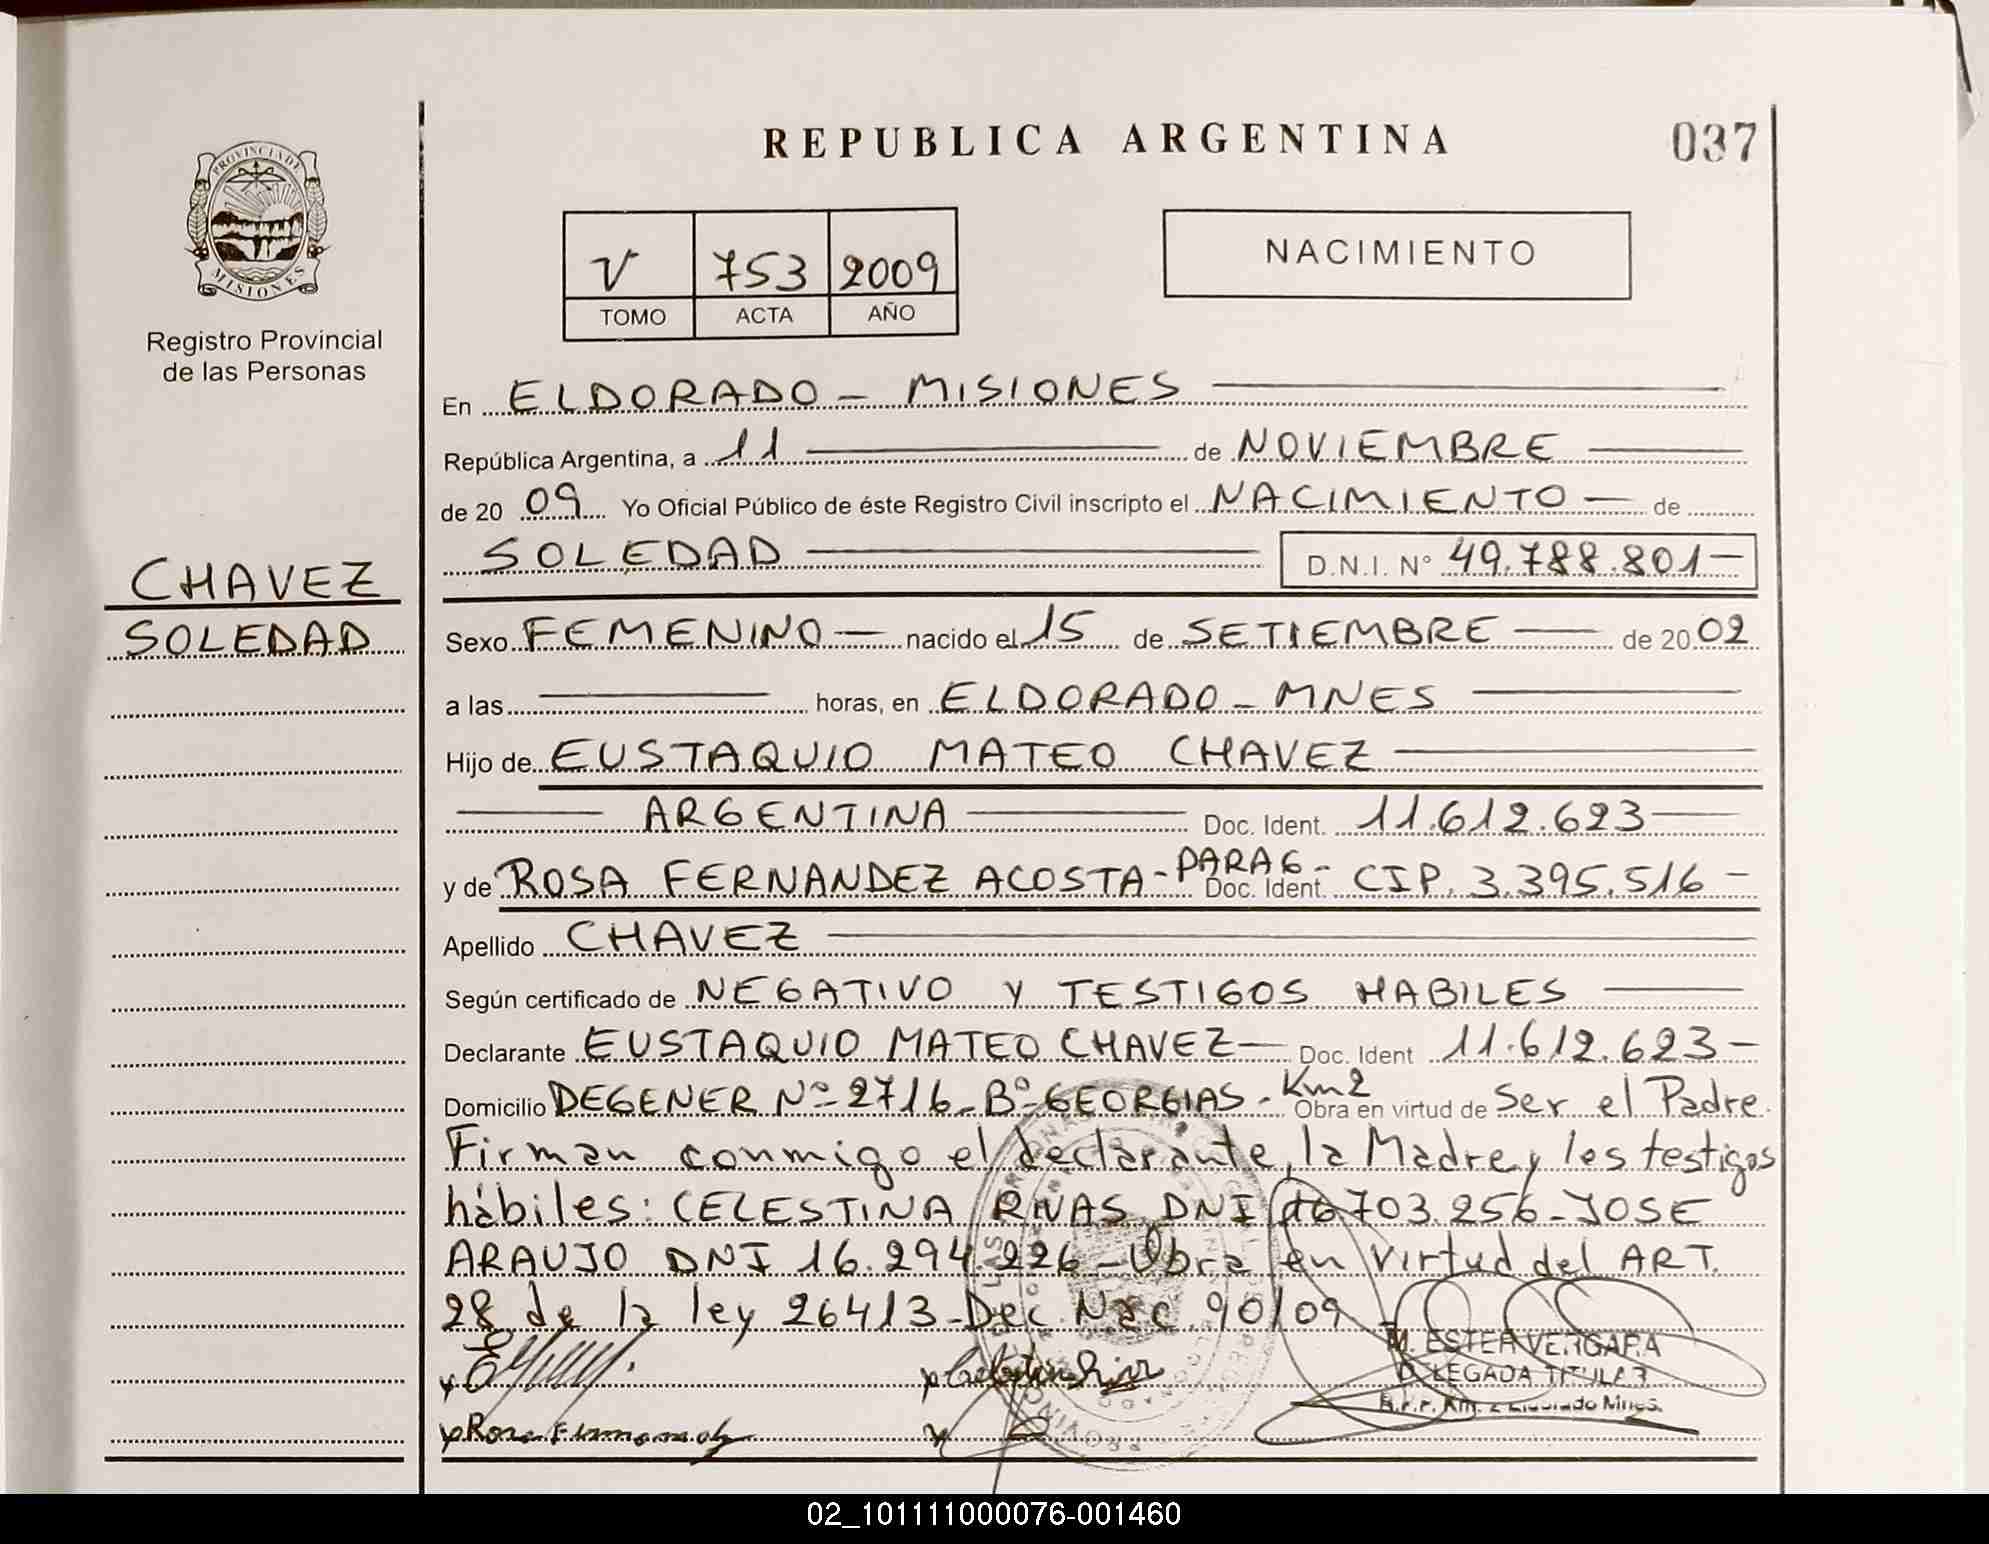 REPUBLICA ARGENTINA
037
PROVINCIA DE
MISIONES
Registro Provincial
de las Personas
V 753 2009
TOMO ACTA AÑO
NACIMIENTO
En ELDORADO - MISIONES
República Argentina, a 11 de NOVIEMBRE
de 2009 Yo Oficial Público de éste Registro Civil inscripto el NACIMIENTO de
SOLEDAD D.N.I. N° 49.788.801-
CHAVEZ
SOLEDAD
Sexo FEMENINO nacido el 15 de SETIEMBRE de 2002
a las horas, en ELDORADO - MNES
Hijo de EUSTAQUIO MATEO CHAVEZ
ARGENTINA Doc. Ident. 11.612.623
y de ROSA FERNANDEZ ACOSTA - PARAG - Doc. Ident. CIP. 3.395.516 -
Apellido CHAVEZ
Según certificado de NEGATIVO Y TESTIGOS HABILES
Declarante EUSTAQUIO MATEO CHAVEZ Doc. Ident 11.612.623 -
Domicilio DEGENER Nº 2716 - Bº GEORGIAS - Km 2 Obra en virtud de Ser el Padre.
Firman conmigo el declarante, la Madre y los testigos
hábiles: CELESTINA RIVAS DNI 703.256 - JOSE
ARAUJO DNI 16.294.226 - Obra en virtud del ART.
28 de la ley 26413 - Dec. Nac. 90/09
M. ESTER VERGARA
DELEGADA TITULAR
R.P.P. Km. 2 Eldorado Mnes.
Rosa Fernandez
02_101111000076-001460